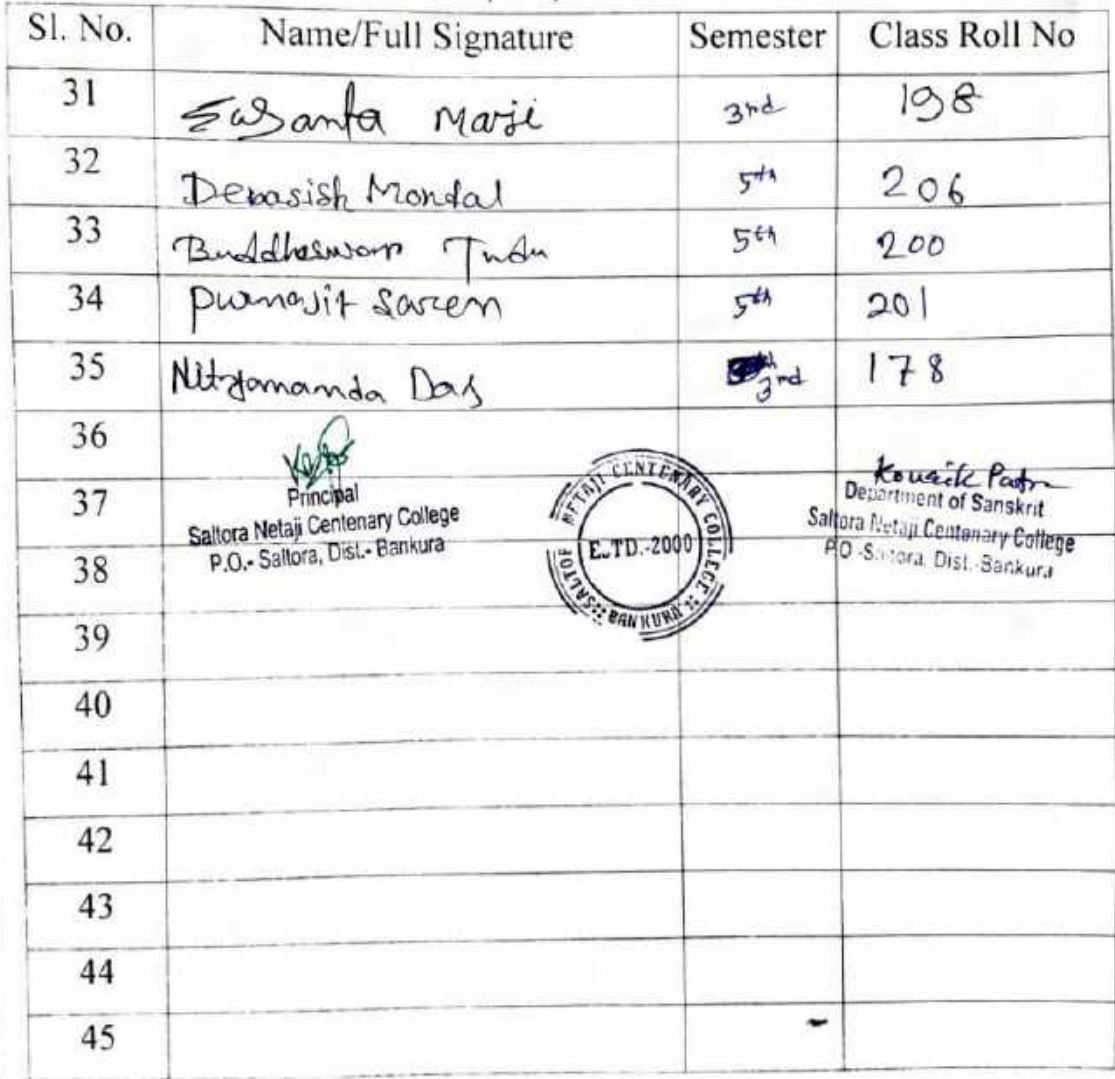 Sl. No. Name/Full Signature Semester Class Roll No
31 Susanta Maji 3rd 198
32 Debasish Mondal 5th 206
33 Buddheswar Tudu 5th 200
34 Purnajit Saren 5th 201
35 Nityananda Das 3rd 178
36
37
38
Principal
Saltora Netaji Centenary College
P.O.- Saltora, Dist.- Bankura
SALTORA NETAJI CENTENARY COLLEGE :: BANKURA ::
E.TD.-2000
Kousik Patra
Department of Sanskrit
Saltora Netaji Centenary College
P.O.-Saltora, Dist.-Bankura
39
40
41
42
43
44
45